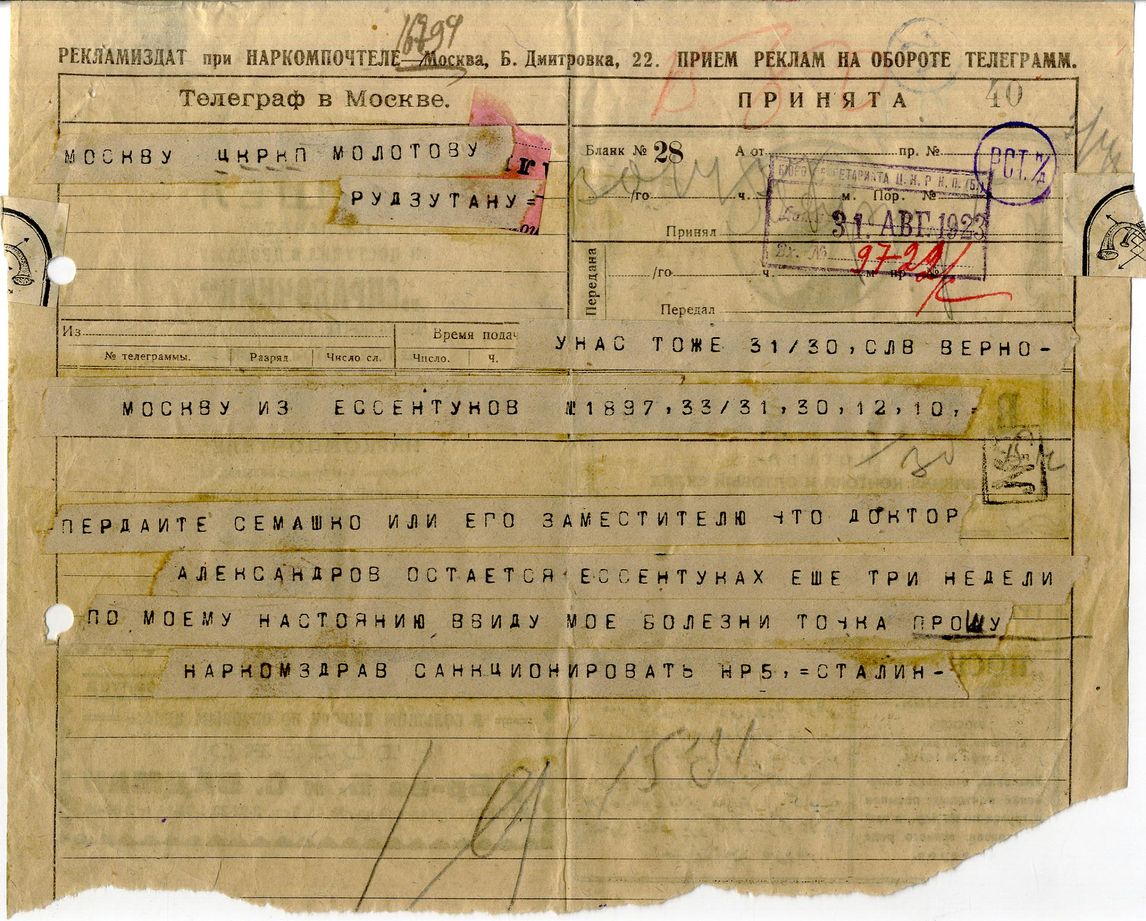 16794
РЕКЛАМИЗДАТ при НАРКОМПОЧТЕЛЕ—Москва, Б. Дмитровка, 22. ПРИЕМ РЕКЛАМ НА ОБОРОТЕ ТЕЛЕГРАММ.
Телеграф в Москве.
ПРИНЯТА 40
МОСКВУ ЦКРКП МОЛОТОВУ
РУДЗУТАНУ=
Бланк № 28 А от пр. №
РСТ. п/д
БЮРО СЕКРЕТАРИАТА Ц. К. Р. К. П. (б.)
/го ч. м. Пор. №
31. АВГ. 1923
Принял
Вх. № 97-29/с
Передана
/го ч. м. пр. №
Передал
Из
Время подач
№ телеграммы. Разряд Число сл. Число. ч.
УНАС ТОЖЕ 31/30,СЛВ ВЕРНО-
МОСКВУ ИЗ ЕССЕНТУКОВ №1897,33/31,30,12,10,=
/30
ПЕРДАИТЕ СЕМАШКО ИЛИ ЕГО ЗАМЕСТИТЕЛЮ ЧТО ДОКТОР
АЛЕКСАНДРОВ ОСТАЕТСЯ ЕССЕНТУКАХ ЕШЕ ТРИ НЕДЕЛИ
ПО МОЕМУ НАСТОЯНИЮ ВВИДУ МОЕ БОЛЕЗНИ ТОЧКА ПРОШУ
НАРКОМЗДРАВ САНКЦИОНИРОВАТЬ НР5,=СТАЛИН-